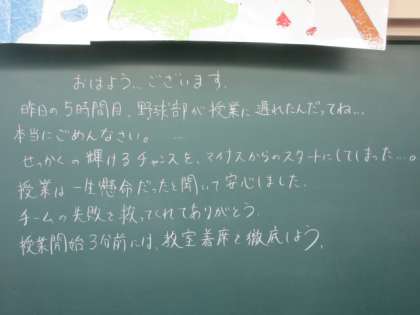 おはよう…ございます。
昨日の5時間目、野球部が授業に遅れたんだってね…
本当にごめんなさい。…
せっかくの輝けるチャンスを、マイナスからのスタートにしてしまった…。
授業は一生懸命だったと聞いて安心しました。
チームの失敗を救ってくれてありがとう。
授業開始3分前には、教室着席を徹底しよう。